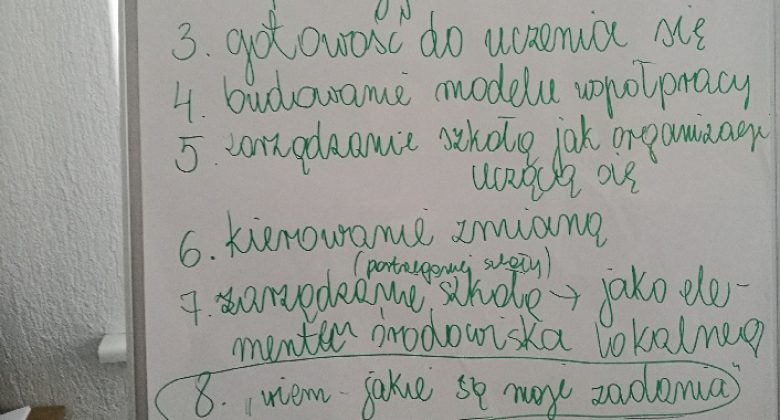 3. gotowość do uczenia się
4. budowanie modelu współpracy
5. zarządzanie szkołą jak organizacją
uczącą się
6. kierowanie zmianą
szkoły)
7. zarządzanie szkołą → jako ele-
mentem środowiska lokalnego
8. "wiem - jakie są moje zadania"